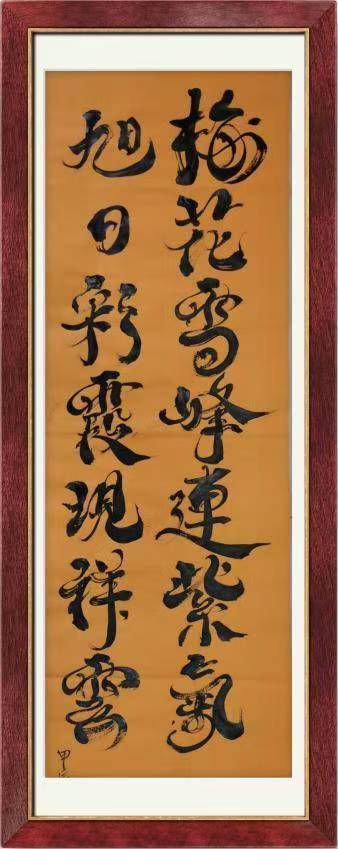 梅花雪峰連紫氣
旭日彩霞現祥雲
甲